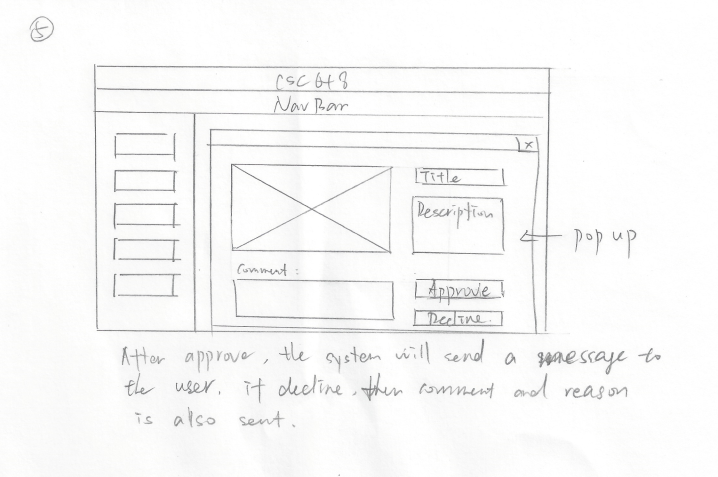 5
CSC 648
Nav Bar
x
Title
Description
pop up
Comment :
Approve
Decline.
After approve, the system will send a message to
the user. if decline, then comment and reason
is also sent.